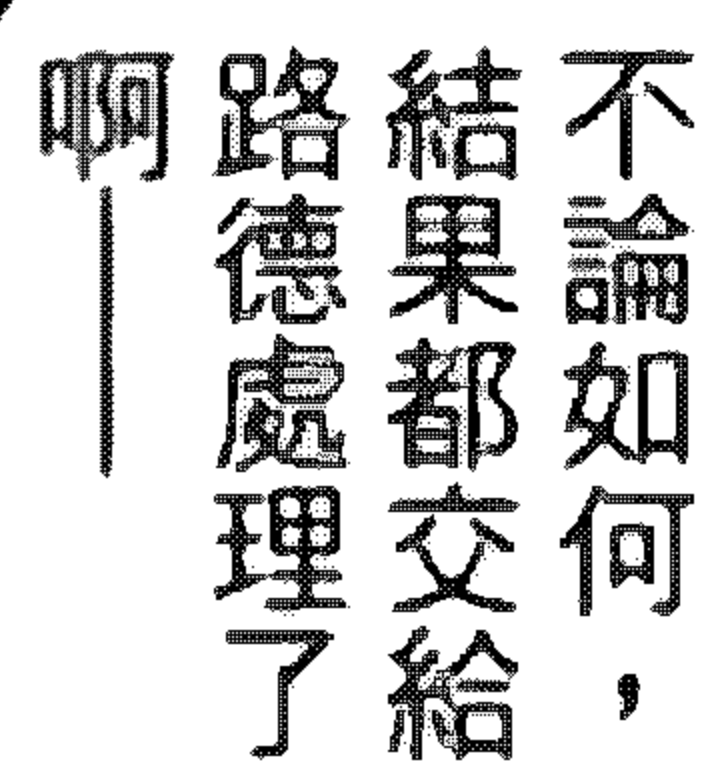 不論如何，
結果都交給
路德處理了
啊——